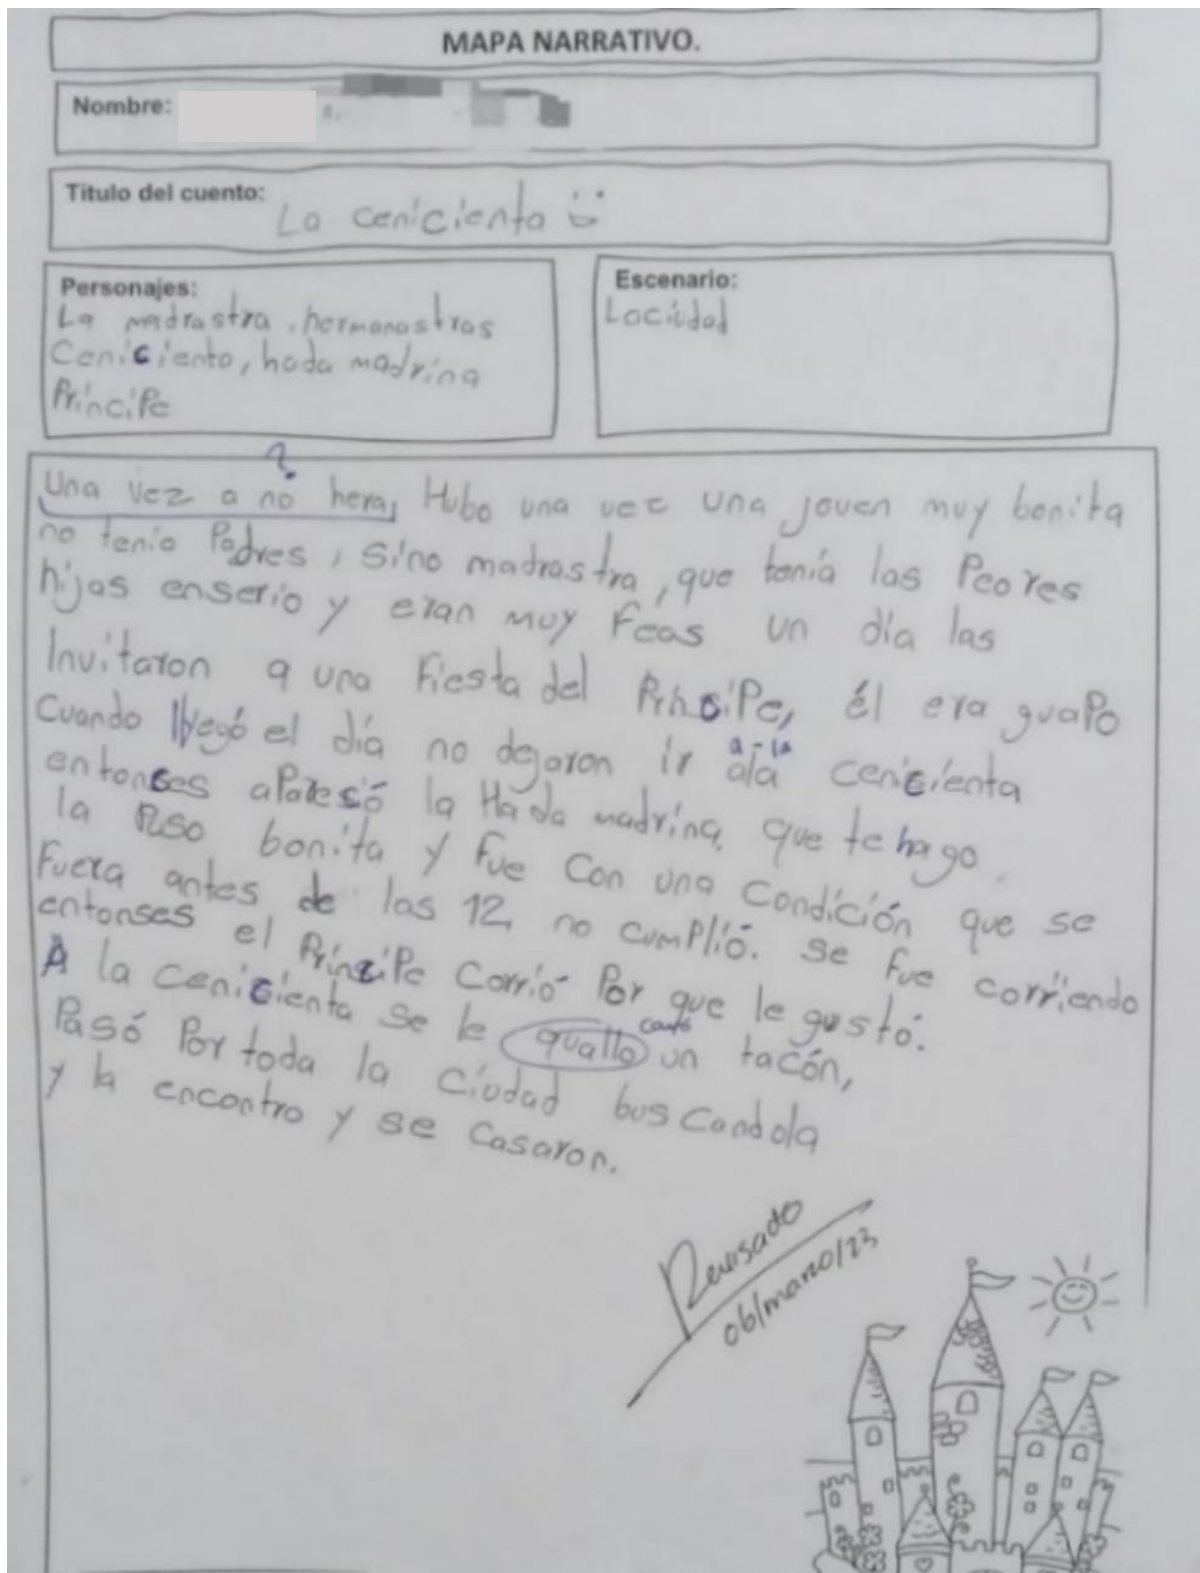 MAPA NARRATIVO.
Nombre:
Titulo del cuento: La cenicienta
Personajes:
La madrastra, hermanastras
Cenicienta, hada madrina
Principe
Escenario:
La ciudad
?
Una vez a no hera, Hubo una vez una joven muy bonita
no tenia Padres, sino madrastra, que tenía las Peores
hijas enserio y eran muy Feas un día las
Invitaron a una Fiesta del Príncipe, él era guapo
Cuando llegó el día no dejaron ir a la cenicienta
a - la
entonces aparesó la Hada madrina. que te hago
la Puso bonita y Fue Con una Condición que se
Fuera antes de las 12, no cumplió. Se fue corriendo
entonses el Príncipe Corrió Por que le gustó.
A la cenicienta se le quallo un tacón,
cayó
Pasó Por toda la Ciudad buscandola
y la encontro y se Casaron.
Revisado
06/marzo/23